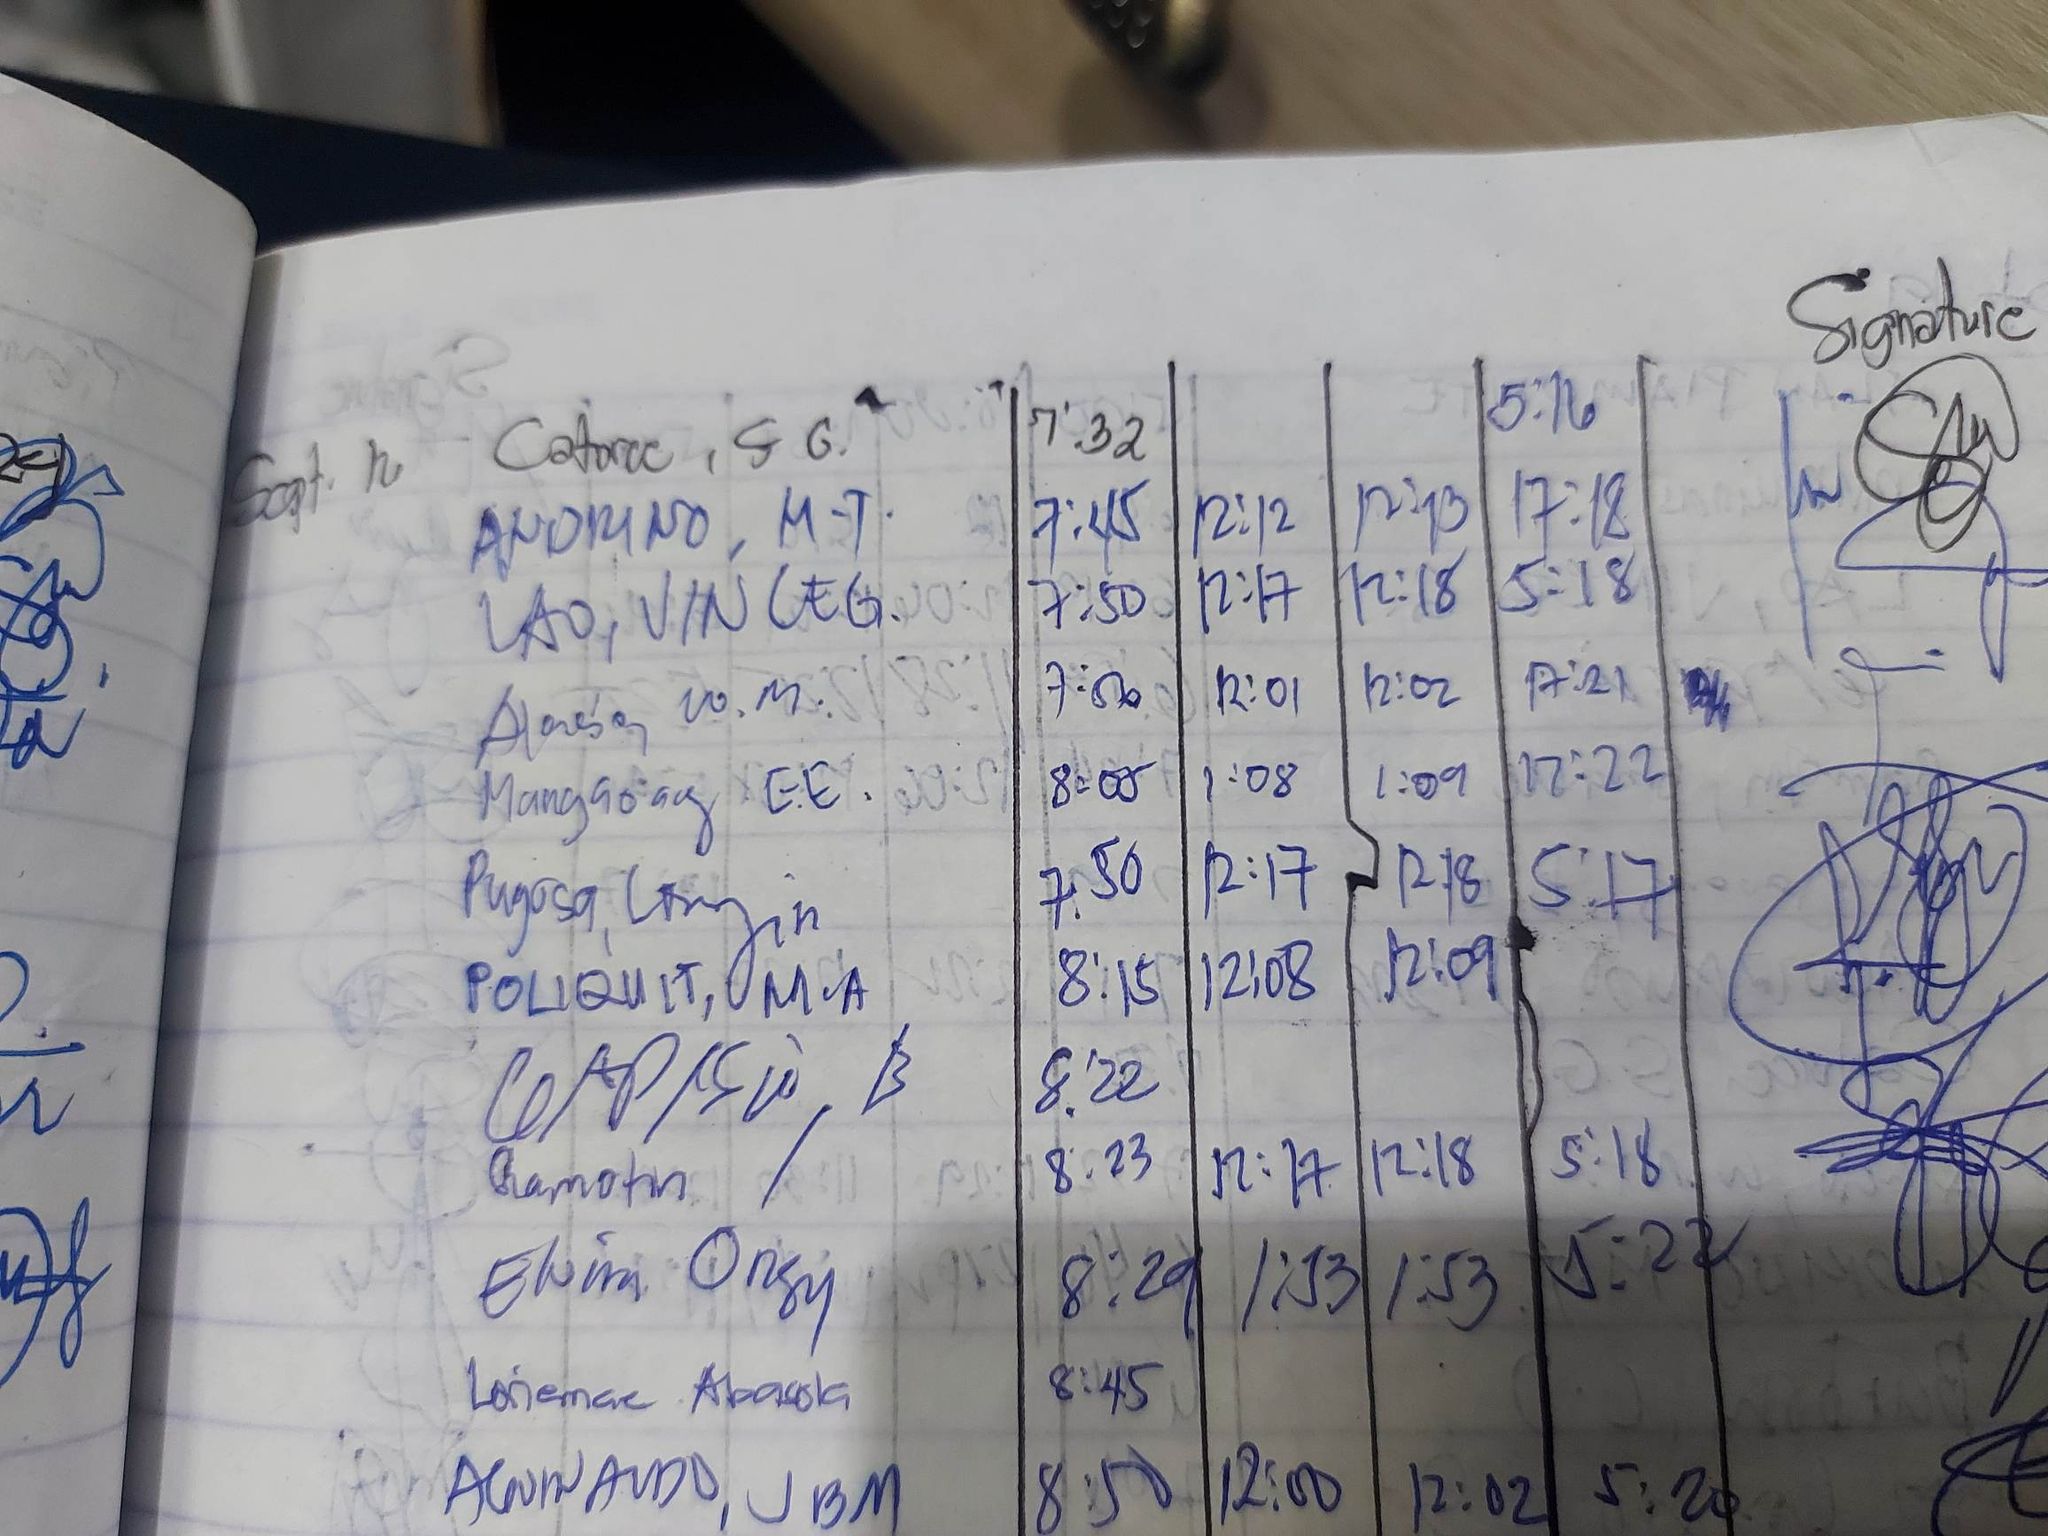 Signature
Sept. 12 Catorce, S G. 7:32 5:16
ANDRINO, M.T. 7:45 12:12 12:13 17:18
LAO, VINCE G. 7:50 12:17 12:18 5:18
W.M. 12:01 12:02 17:21
Mangaoag E.E. 8:05 1:08 1:09 17:22
Pugosa, Longin 7:50 12:17 12:18 5:17
POLIQUIT, M.A 8:15 12:08 12:09
B 8:22
8:23 12:17 12:18 5:18
Elvira 8:29 1:53 1:53 5:22
Loriemae Abasola 8:45
AGUINALDO, JBM 8:50 12:00 12:02 5:20